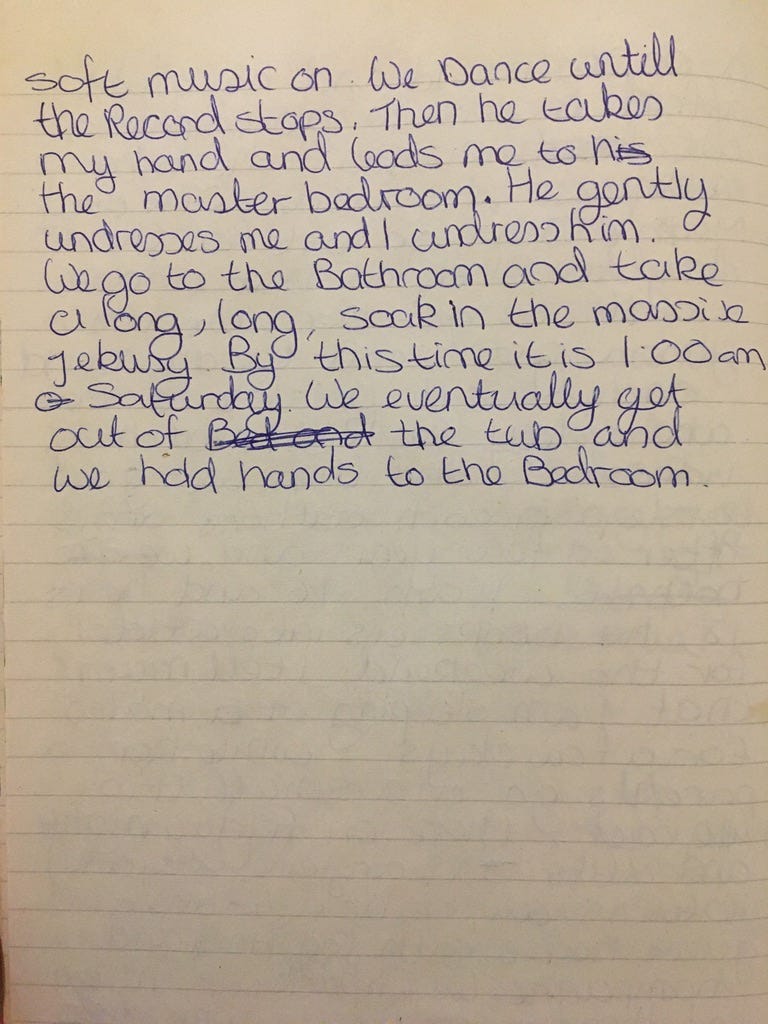 soft music on. We Dance untill
the Record stops. Then he takes
my hand and leads me to his
the master bedroom. He gently
undresses me and I undress him.
We go to the Bathroom and take
a long, long, soak in the massive
jekusy. By this time it is 1:00am
Saturday. We eventually get
out of Bed and the tub and
we hold hands to the Bedroom.